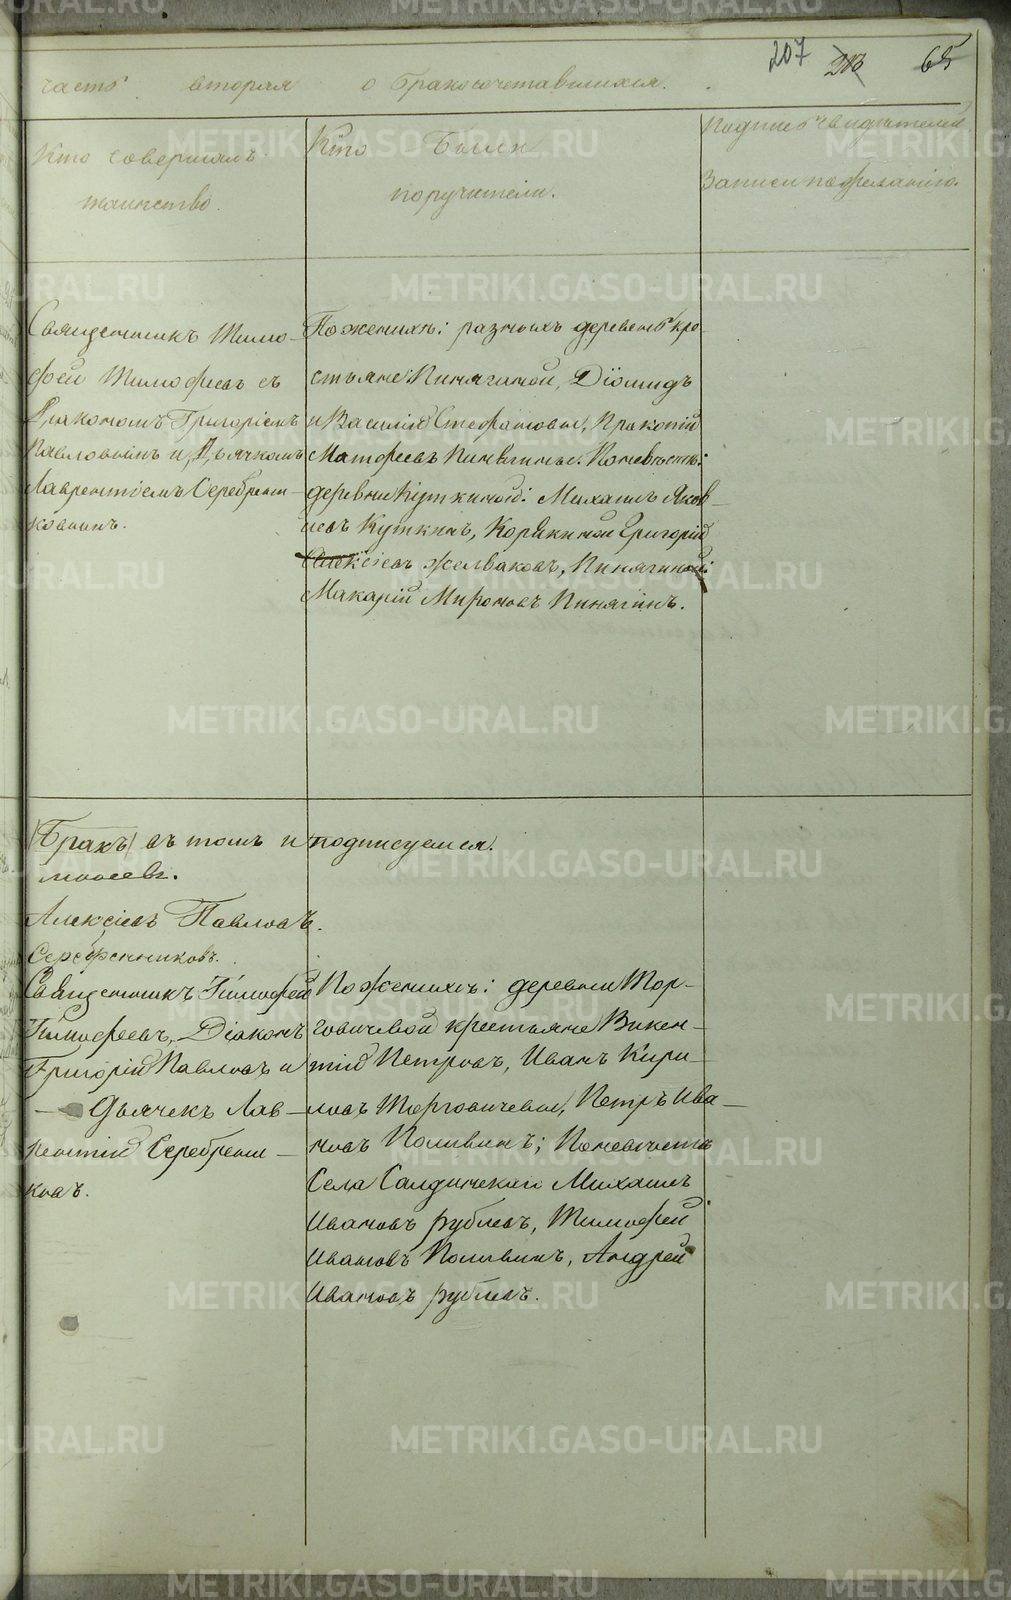 207 203 65
часть вторая о бракосочетавшихся.
Кто совершалъ
таинство.
Кто были
поручители.
Подпись свидѣтелей
записи по желанію.
Священникъ Тимо-
фей Тимофеевъ съ
Діакономъ Григоріемъ
Павловымъ и Дьячкомъ
Лаврентіемъ Серебрени-
ковымъ.
По женихѣ: разныхъ деревень кре-
стьяне: Пинягиной, Діомидъ
и Василій Стефановы, Прокопій
Матфеевъ Пинягины. По невѣстѣ:
деревни Куткиной: Михаилъ Яков-
левъ Куткинъ, Корякиной Григорій
Алексіевъ Желваковъ, Пинягиной:
Макарій Мироновъ Пинягинъ.
(Бракъ) въ томъ и подписуемся.
Алексіевъ Павловъ.
Серебренниковъ.
Священникъ Тимофей
Тимофеевъ, Діаконъ
Григорій Павловъ и
Дьячекъ Лав-
рентій Серебрени-
ковъ.
По женихѣ: деревни Тор-
говичевой крестьяне Викен-
тій Петровъ, Иванъ Кири-
ловъ Торговичевы, Петръ Ива-
новъ Поливинъ; По невѣстѣ
Села Салдинскаго Михаилъ
Ивановъ рублевъ, Тимофей
Ивановъ Поливинъ, Андрей
Ивановъ рублевъ.
METRIKI.GASO-URAL.RU